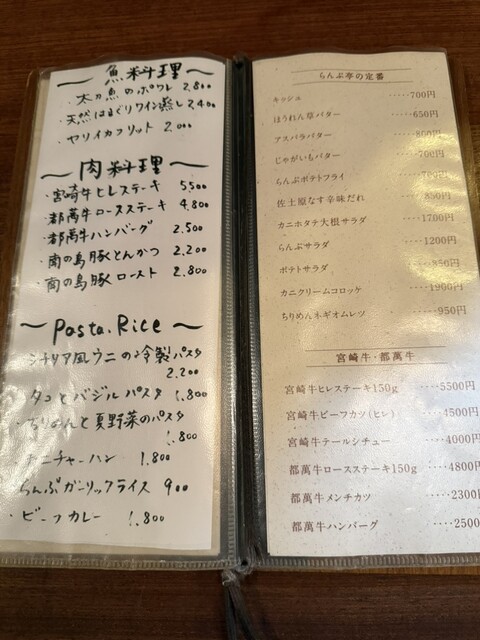 ～ 魚料理 ～
・太刀魚のポワレ 2,800
・天然はまぐりワイン蒸し 2,400
・ヤリイカフリット 2,000
～ 肉料理 ～
・宮崎牛ヒレステーキ 5,500
・都萬牛ロースステーキ 4,800
・都萬牛ハンバーグ 2,500
・南の島豚とんかつ 2,200
・南の島豚ロースト 2,800
～ Pasta.Rice ～
シチリア風ウニの冷製パスタ
2,200
・タコとバジルパスタ 1,800
・ちりめんと夏野菜のパスタ
1,800
チーチャーハン 1,800
らんぷガーリックライス 900
・ビーフカレー 1,800
らんぷ亭の定番
キッシュ ‥‥‥700円
ほうれん草バター ‥‥‥650円
アスパラバター ‥‥‥800円
じゃがいもバター ‥‥‥700円
らんぷポテトフライ 700円
佐土原なす辛味だれ ‥‥‥850円
カニホタテ大根サラダ ‥‥1700円
らんぷサラダ ‥‥1200円
ポテトサラダ ‥‥‥850円
カニクリームコロッケ ‥‥1900円
ちりめんネギオムレツ ‥‥‥950円
宮崎牛・都萬牛
宮崎牛ヒレステーキ150g ‥‥5500円
宮崎牛ビーフカツ(ヒレ) ‥‥4500円
宮崎牛テールシチュー ‥‥4000円
都萬牛ロースステーキ150g ‥‥4800円
都萬牛メンチカツ ‥‥2300円
都萬牛ハンバーグ ‥‥2500